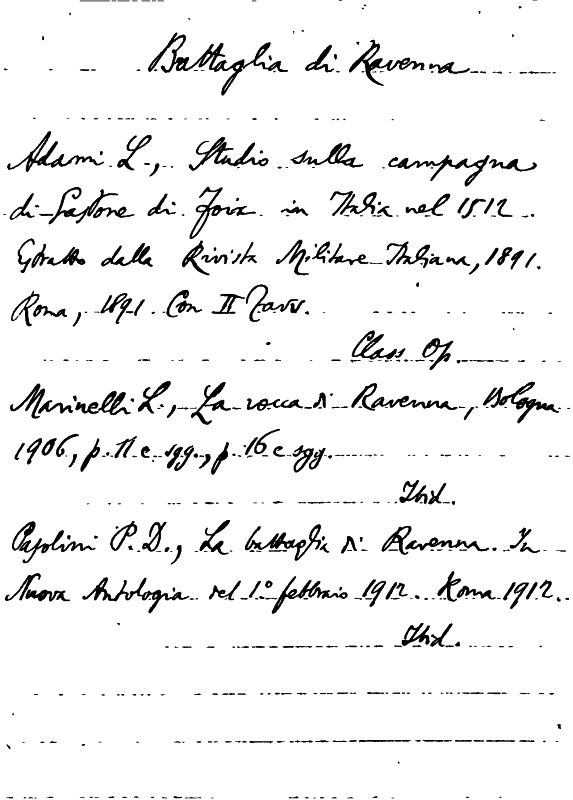 Battaglia di Ravenna
Adami L., Studio sulla campagna
di Gastone di Foix in Italia nel 1512.
Estratto dalla Rivista Militare Italiana, 1891.
Roma, 1891. Con II Tavv.
Class. Op.
Marinelli L., La rocca di Ravenna, Bologna
1906, p. 11 e sgg., p. 16 e sgg.
Ibid.
Pasolini P. D., La battaglia di Ravenna. In
Nuova Antologia del 1° febbraio 1912. Roma 1912.
Ibid.